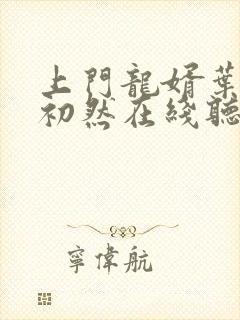 上門龍婿葉
初然在綫聽
寧偉航